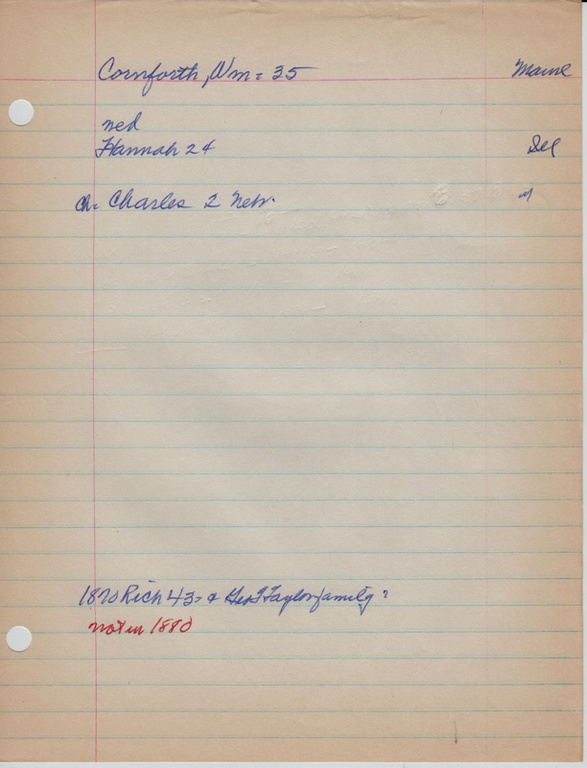 Cornforth, Wm = 35 Maine
med
Hannah 24 Ill
ch. Charles 2 Nebr. "
1870 Rich 43 = & Geo T Taylor family ?
not in 1880